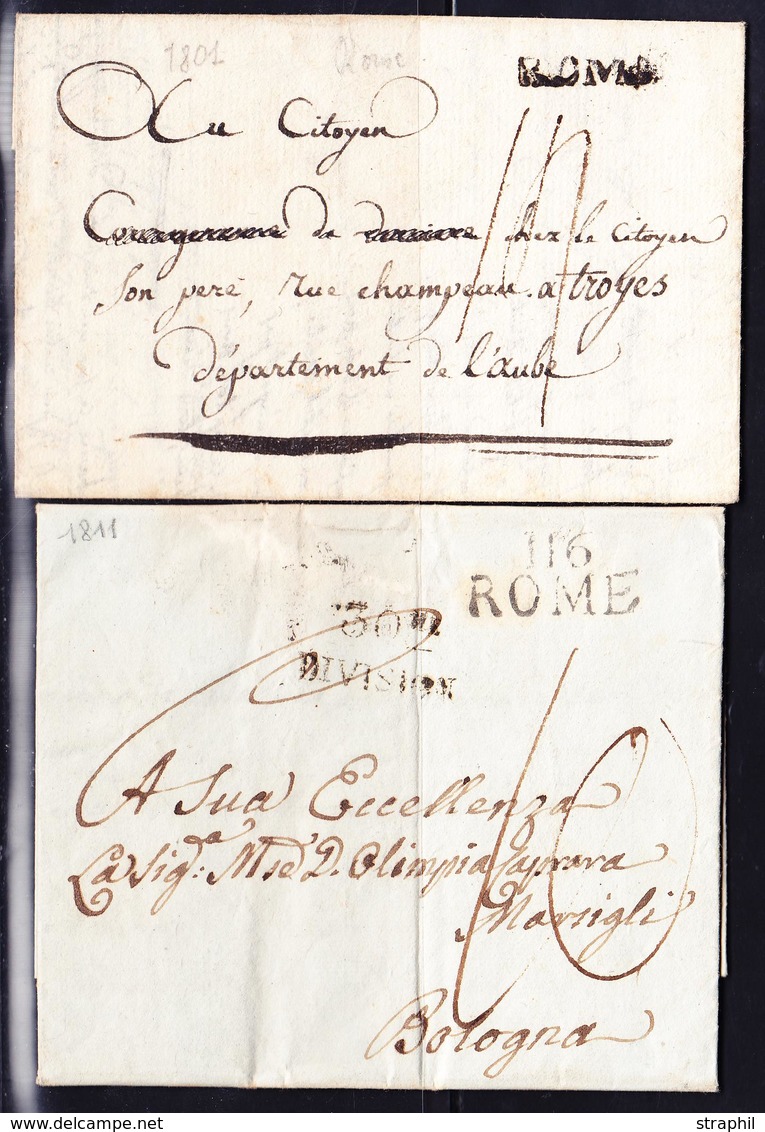 1801 Rome
ROME
Au Citoyen
de chez le Citoyen
Son pere, rue champeau. a troyes
département de l'aube
1811
116
ROME
30me
DIVISION
A Sua Eccellenza
La Sig.a Mse D. Olimpia Caprara
Marsigli
Bologna
10
© philastral